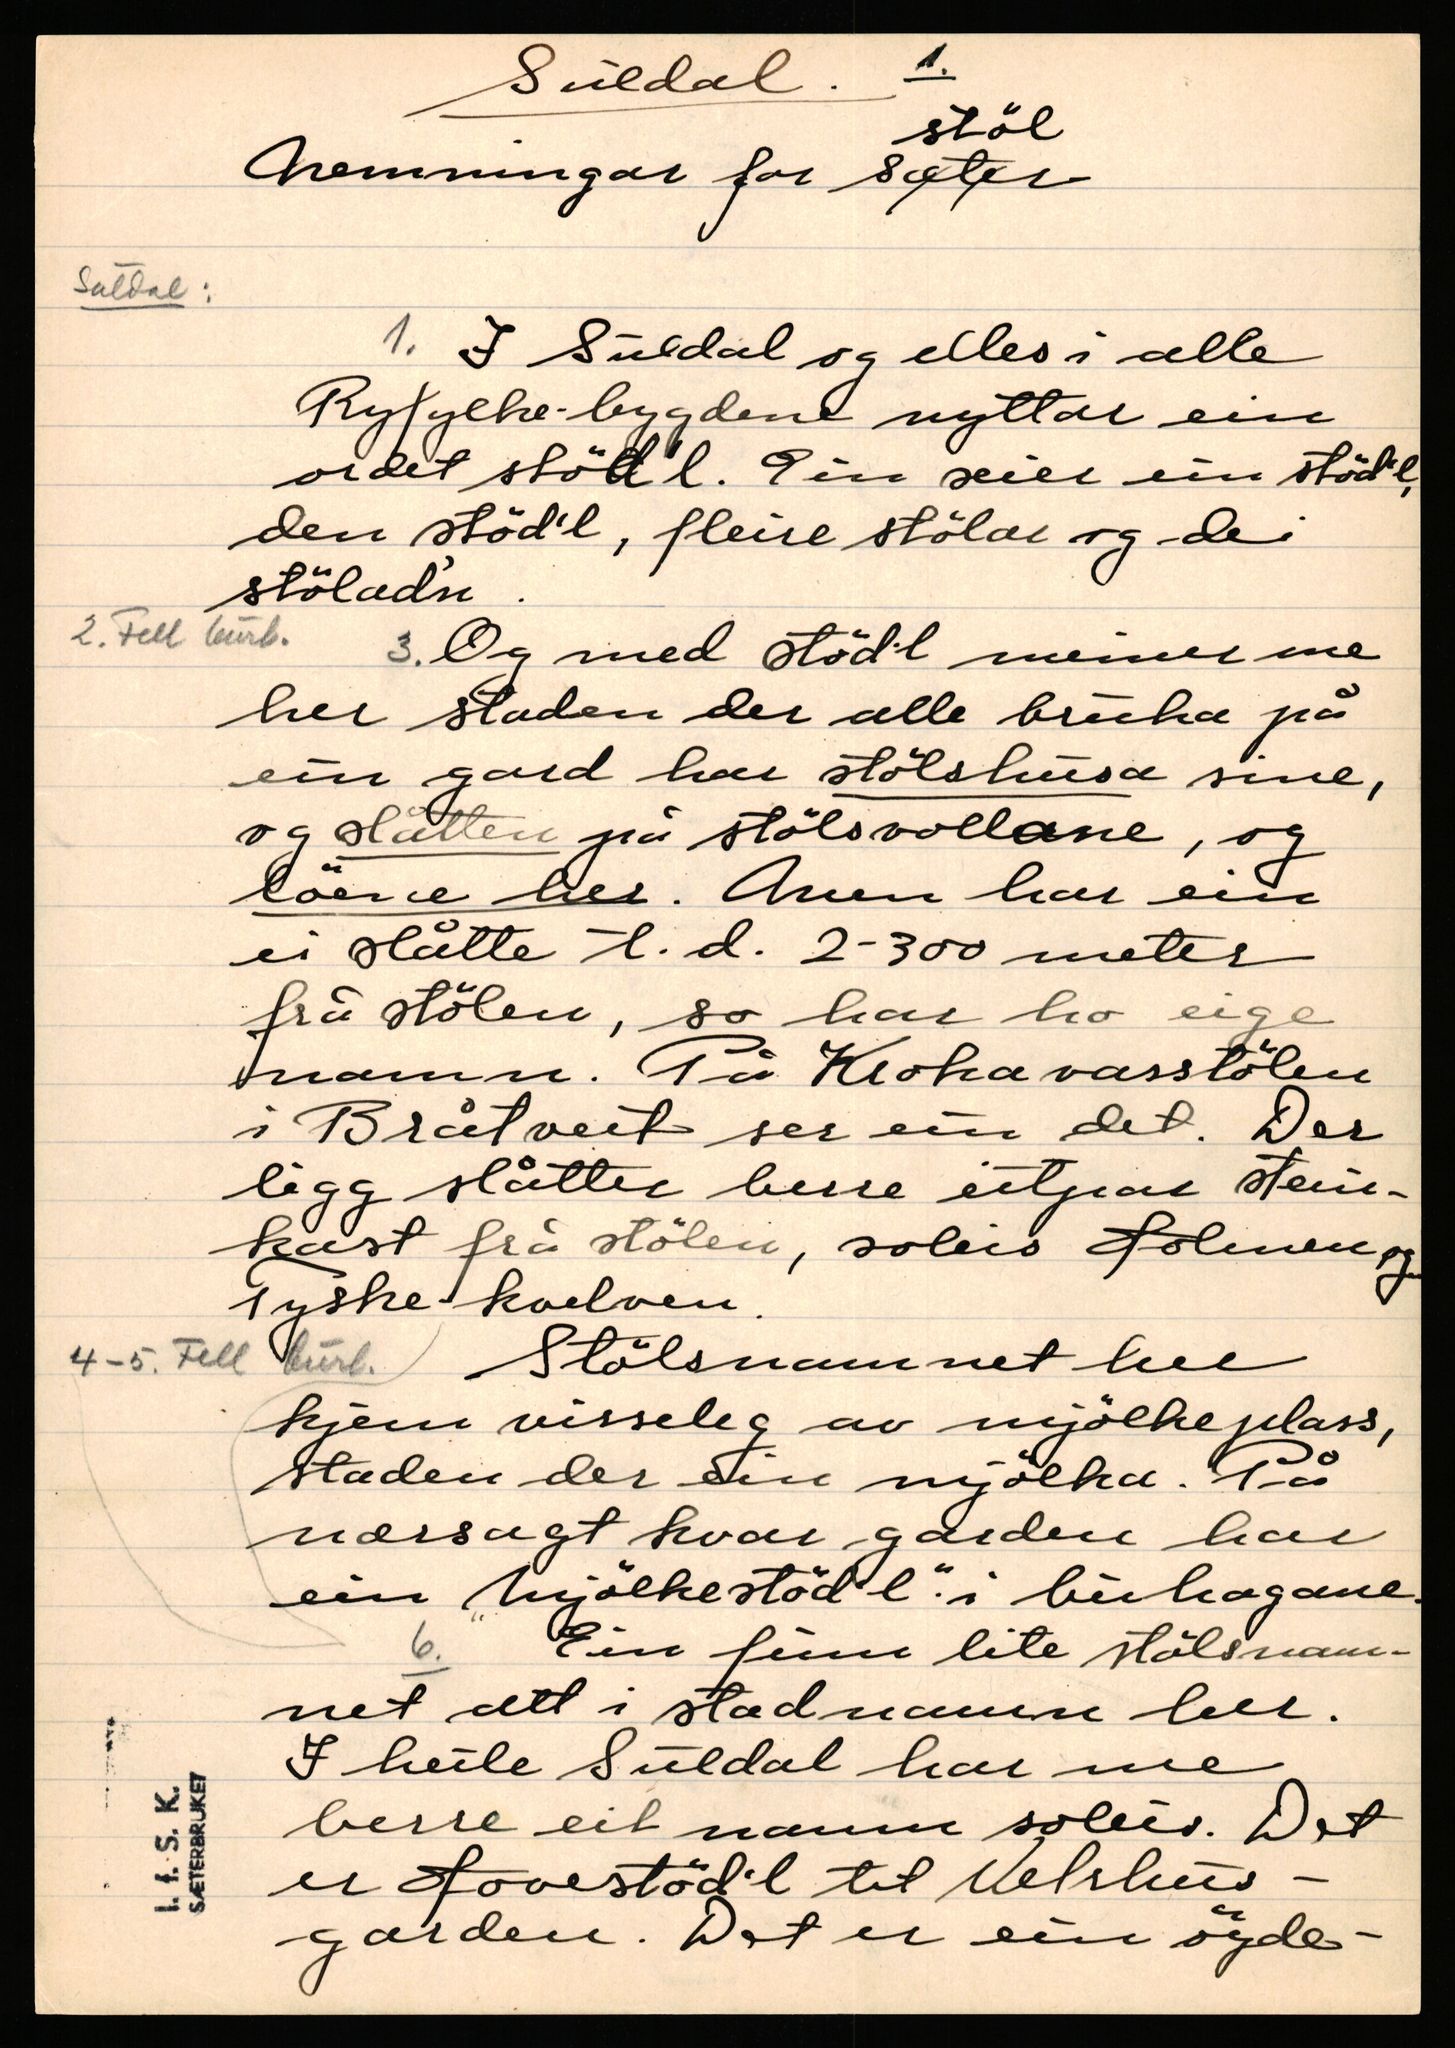 Suldal. 1.
stöl
Nemningar for sæter
Suldal:
1. I Suldal og elles i alle
Ryfylke-bygdene nyttar ein
ordet stöd'l. Ein seier ein stöd'l,
den stöd'l, fleire stölar og dei
stölad'n.
2. Fell burt.
3. Og med stöd'l meiner me
her staden der alle bruka på
ein gard har stölshusa sine,
og slåtten på stölsvollane, og
löene her. Men har ein
ei slåtte t.d. 2-300 meter
frå stölen, so har ho eige
namn. På Krokavasstölen
i Bråtveit ser ein det. Der
ligg slåtter berre eitpar stein-
kast frå stölen, soleis Holmen og
Tyske-kvelven.
4-5. Fell burt.
Stölsnamnet her
kjem visseleg av mjölkeplass,
staden der ein mjölka. På
nærsagt kvar garden har
ein "Mjölkestöd'l" i buhagane.
6. Ein finn lite stölsnam-
net att i stadnamn her.
I heile Suldal har me
berre eit namn soleis. Det
er Hovestöd'l til Vetrhus-
garden. Det er ein öyde-
I. f. S. K.
SÆTERBRUKET